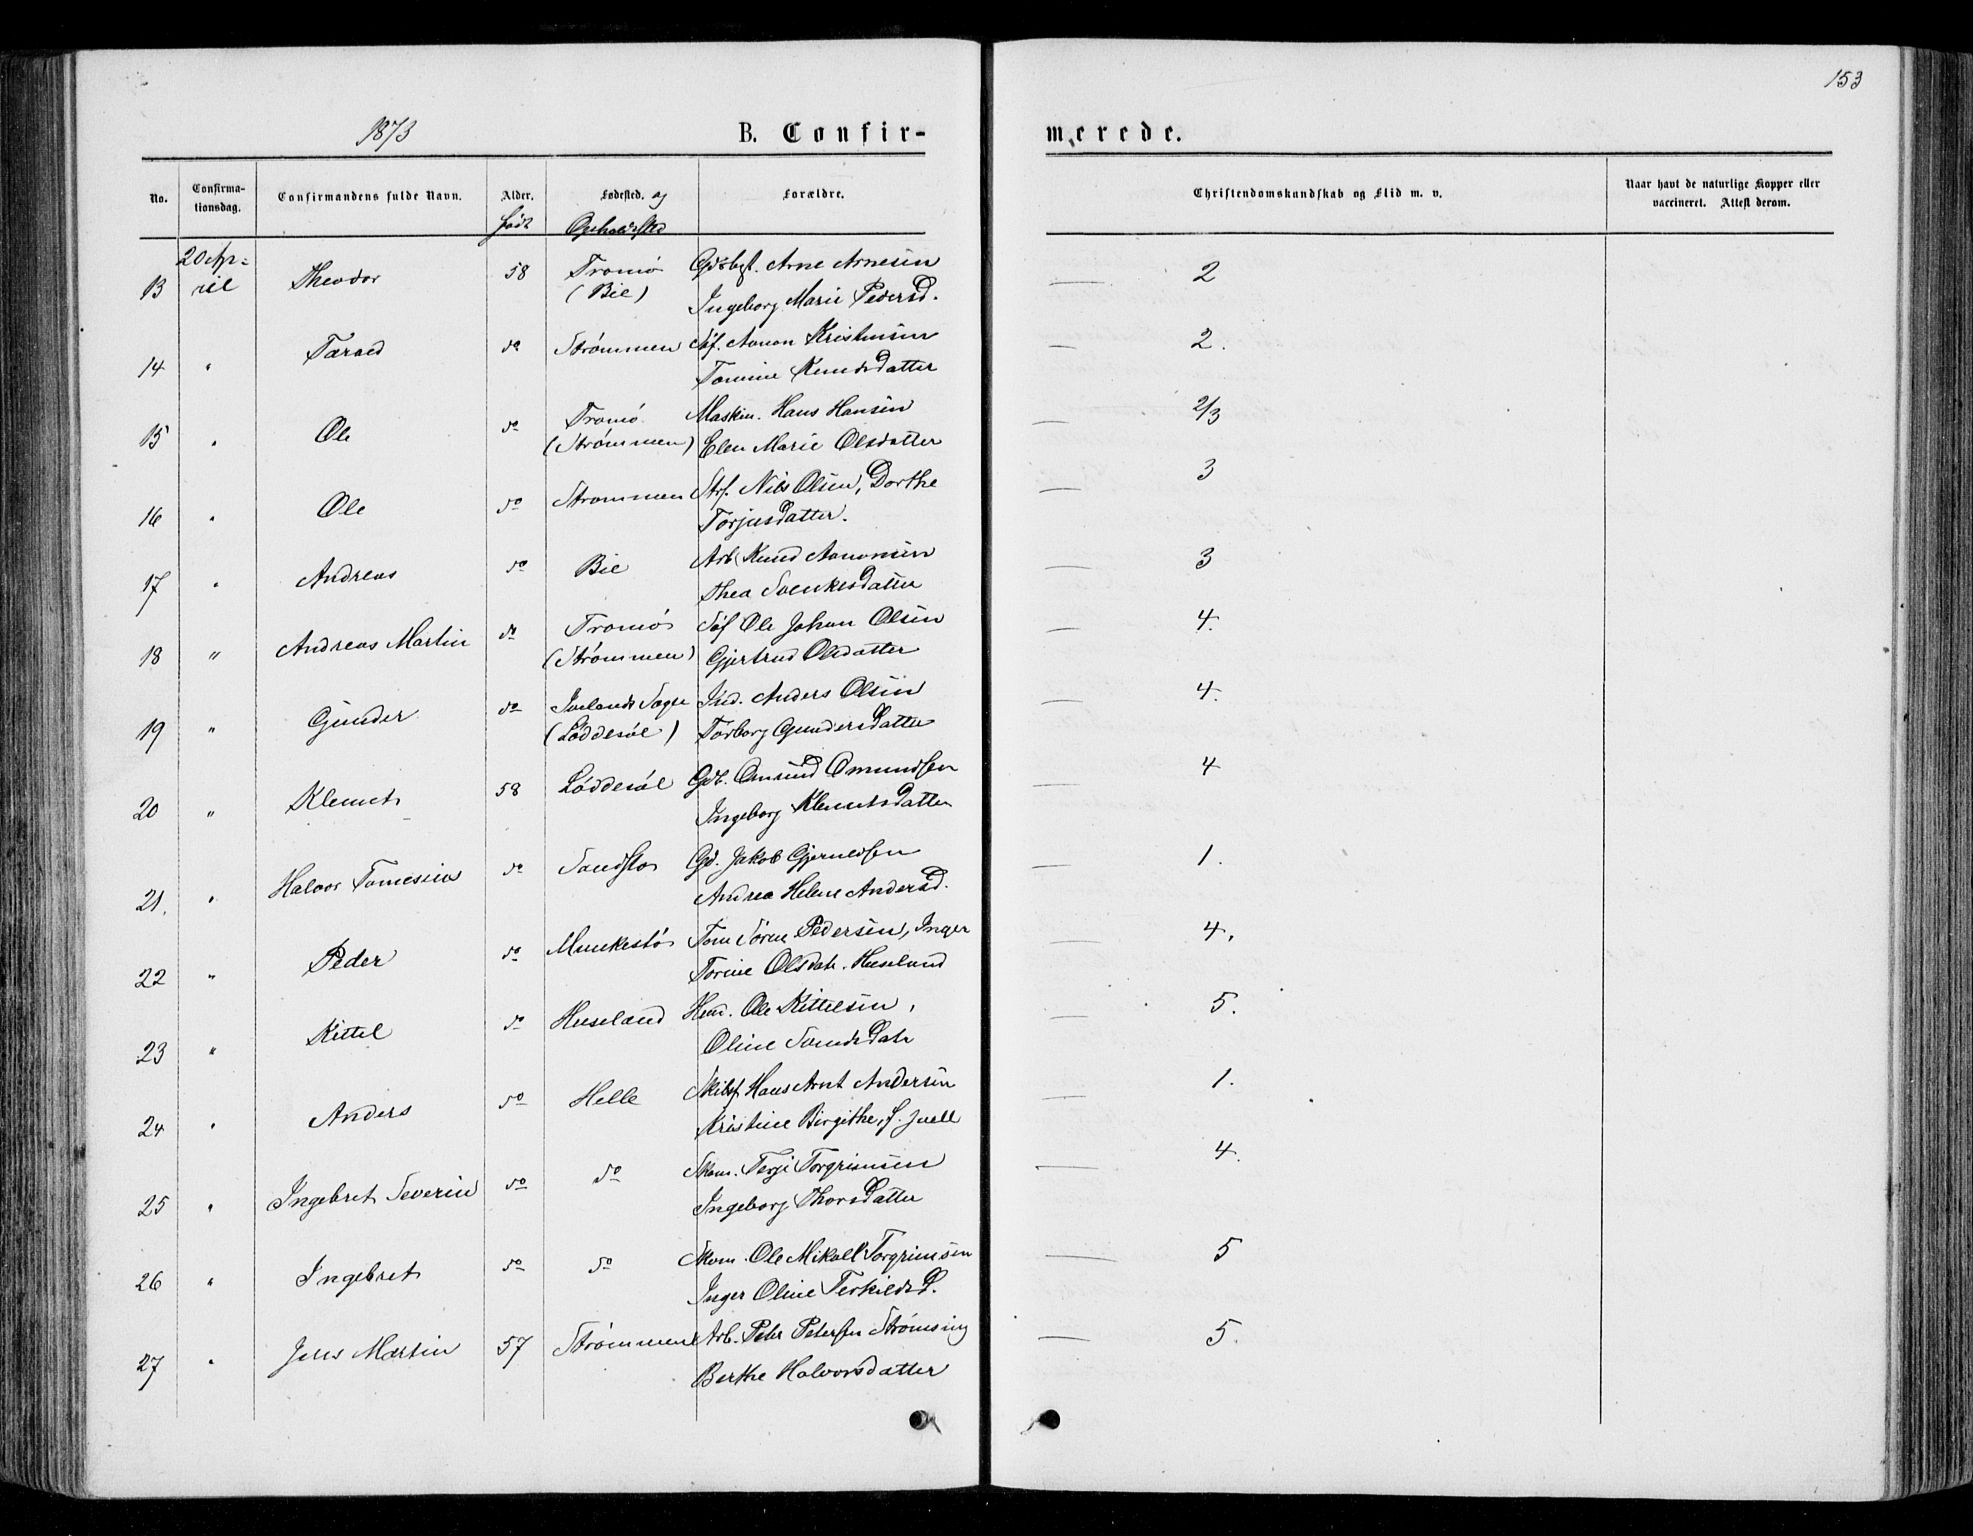 153
1873 B. Confir- merede.
No. Confirma-tionsdag. Confirmandens fulde Navn. Alder. Fødested. og Forældre. Christendomskundskab og Flid m. v. Naar havt de naturlige Kopper eller vaccineret. Attest derom.
født Opholdssted
13 20 Ap=ril Theodor 58 Tromø Gdbgf. Arne Arnesen 2
(Bie) Ingeborg Marie Pedersd.
14 " Tarald do Strømmen Søf. Aanon Kristensen 2.
Tomine KnudsDatter
15 " Ole do Tromø Maskin. Hans Hansen 2/3
(Strømmen) Elen Marie Olsdatter
16 " Ole do Strømmen Nils Olsen, Dorthe 3
TorjusDatter.
17 " Andreas do Bie Arb. Knud Aanonsen 3
Thea SvenkesDatter
18 " Andreas Martin do Tromø Søf Ole Johan Olsen 4.
(Strømmen) Gjertrud Olsdatter
19 " Gunder do Ind. Anders Olsen 4.
(Løddesøl) Torborg GundersDatter
20 " Klemet 58 Løddesøl Gdb. Omund Omundsen 4
Ingeborg KlemetsDatter
21. " Halvor do Gd. Jakob 1.
Andrea Helene Andersd.
22 " Peder do Søren Pedersen, Inger 4.
Torine Olsdatr. Huseland
23 " Kittel do Huseland Ole Kittelsen, 5.
Oline
24 " Anders do Helle Skibsf. Hans Arnt Andersen 1.
Kristine Birgithe, f. Juell
25 " Ingebret Severin do do Skom. Terje Torgrimsen 4.
Ingeborg ThorsDatter
26 " Ingebret do do Skom. Ole Mikall Torgrimsen 5
Inger Oline TerkildsD.
27 " Jens Martin 57 Strømmen Arb. Peter Petersen Strømsing 5.
Berthe Halvorsdatter